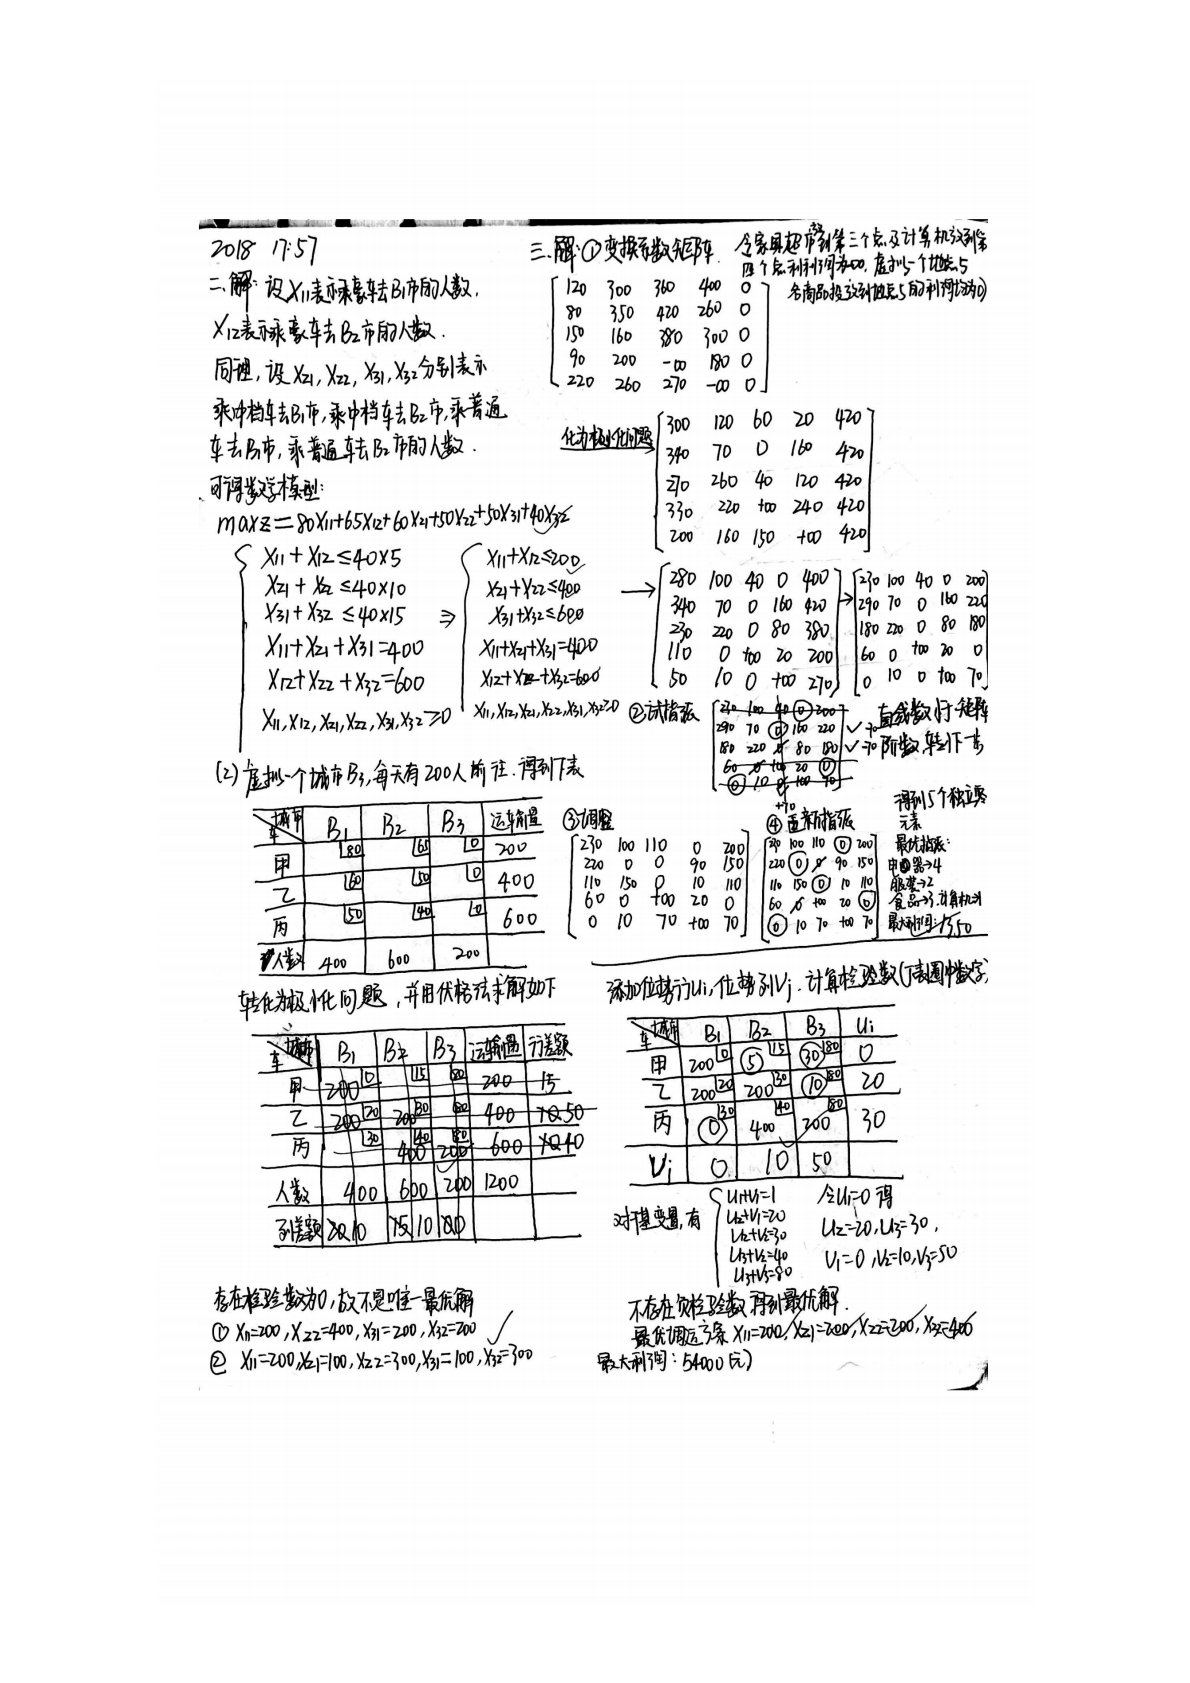 2018 17:57
二、解:设X11表示乘豪车去B1市的人数,
X12表示乘豪车去B2市的人数.
同理,设X21,X22,X31,X32分别表示
乘中档车去B1市,乘中档车去B2市,乘普通
车去B1市,乘普通车去B2市的人数.
可得数学模型:
maxz=80X11+65X12+60X21+50X22+50X31+40X32
X11+X12≤40×5
X21+X22≤40×10
X31+X32≤40×15
X11+X21+X31=400
X12+X22+X32=600
X11,X12,X21,X22,X31,X32≥0
⇒
X11+X12≤200
X21+X22≤400
X31+X32≤600
X11+X21+X31=400
X12+X22+X32=600
X11,X12,X21,X22,X31,X32≥0
(2)虚拟一个城市B3,每天有200人前往.得到下表
车 城市 B1 B2 B3 运输量
甲 80 65 0 200
乙 60 50 0 400
丙 50 40 0 600
人数 400 600 200
转化为极小化问题,并用伏格法求解如下
车 城市 B1 B2 B3 运输量 行差额
甲 200 0 15 80 200 15
乙 200 20 200 30 80 400 10 50
丙 30 400 40 200 80 600 10 40
人数 400 600 200 1200
列差额 20 10 15 10 80
存在检验数为0,故不是唯一最优解
① X11=200,X22=400,X31=200,X32=200
② X11=200,X21=100,X22=300,X31=100,X32=300
三、解:①变换系数矩阵. 令家具超市到第三个点及计算机到第
四个点利润为-∞,虚拟一个地点5
各商品投放到地点5的利润均为0
120 300 360 400 0
80 350 420 260 0
150 160 380 300 0
90 200 -∞ 180 0
220 260 270 -∞ 0
化为极小化问题
300 120 60 20 420
340 70 0 160 420
270 260 40 120 420
330 220 +∞ 240 420
200 160 150 +∞ 420
→
280 100 40 0 400
340 70 0 160 420
230 220 0 80 380
110 0 +∞ 20 200
50 10 0 +∞ 270
→
230 100 40 0 200
290 70 0 160 220
180 220 0 80 180
60 0 +∞ 20 0
0 10 0 +∞ 70
②试指派
230 100 40 0 200
290 70 0 160 220 ✓ -70
180 220 0 80 180 ✓ -70
60 0 +∞ 20 0
0 10 0 +∞ 70
+70
直线数小于矩阵
阶数,转下一步
③调整
230 100 110 0 200
220 0 0 90 150
110 150 0 10 110
60 0 +∞ 20 0
0 10 70 +∞ 70
④重新指派
230 100 110 0 200
220 0 0 90 150
110 150 0 10 110
60 0 +∞ 20 0
0 10 70 +∞ 70
得到5个独立零
元素
最优指派:
电器→4
服装→2
食品→3,计算机→1
最大利润:1350
添加位势行Ui,位势列Vj.计算检验数(下表圈中数字)
车 城市 B1 B2 B3 Ui
甲 200 0 5 15 30 80 0
乙 200 20 200 30 10 80 20
丙 0 30 400 40 200 80 30
Vj 0 10 50
对于基变量,有
U1+V1=1
U2+V1=20
U2+V2=30
U3+V2=40
U3+V3=80
令U1=0 得
U2=20,U3=30,
V1=0,V2=10,V3=50
不存在负检验数,得到最优解.
最优调运方案 X11=200,X21=200,X22=200,X32=400
最大利润:54000(元)